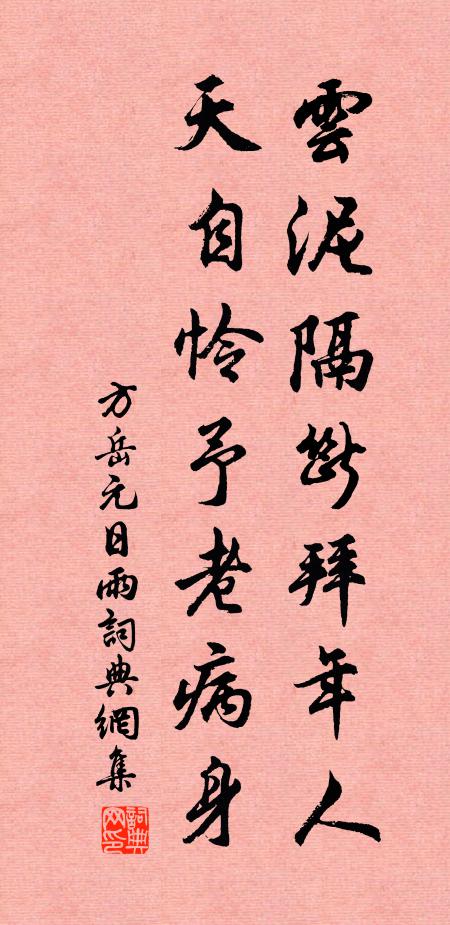 雲泥隔斷拜年人
天自怜予老病身
方岳元日雨詞典網集
詞典网印